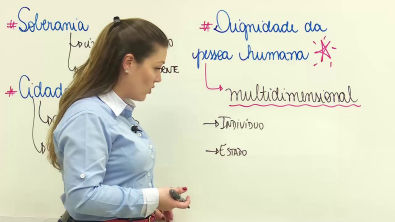 # Soberania
# Cidad
# Dignidade da
pessoa humana
multidimensional
→ INDIVÍDUO
→ ESTADO